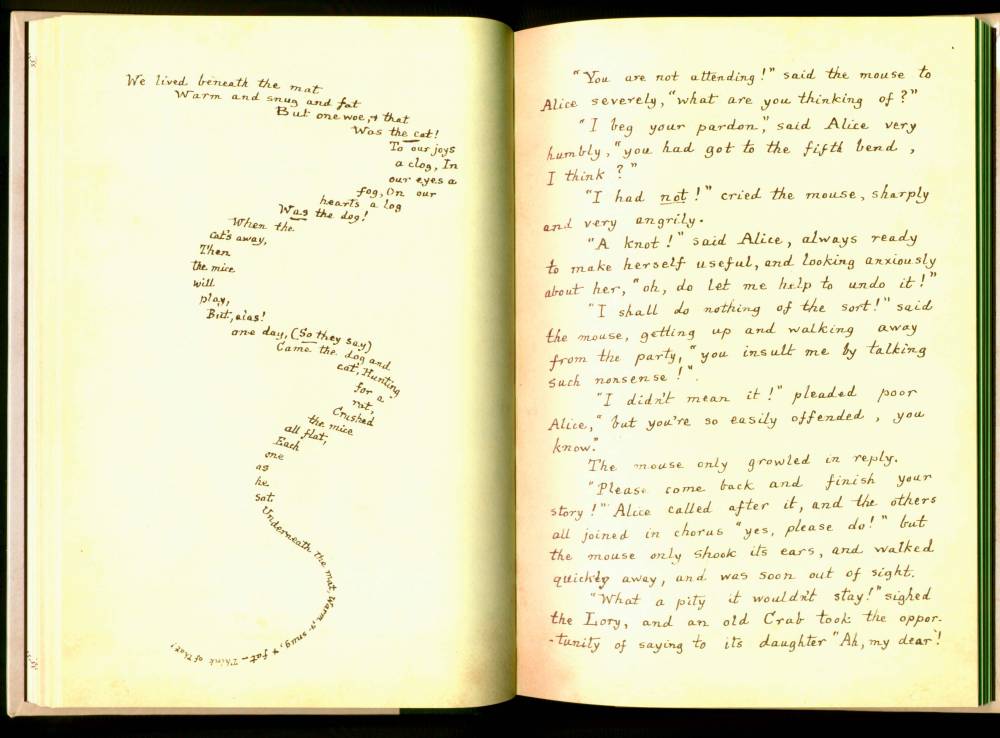 We lived beneath the mat
Warm and snug and fat
But one woe, & that
Was the cat!
To our joys
a clog, In
our eyes a
fog, On our
hearts a log
Was the dog!
When the
cat's away,
Then
the mice
will
play,
But, alas!
one day, (So they say)
Came the dog and
cat, Hunting
for a
rat,
Crushed
the mice
all flat,
Each
one
as
he
sat
Underneath the mat, Warm, & snug, & fat – Think of that!
"You are not attending!" said the mouse to
Alice severely, "what are you thinking of?"
"I beg your pardon", said Alice very
humbly, "you had got to the fifth bend,
I think?"
"I had not!" cried the mouse, sharply
and very angrily.
"A knot!" said Alice, always ready
to make herself useful, and looking anxiously
about her, "oh, do let me help to undo it!"
"I shall do nothing of the sort!" said
the mouse, getting up and walking away
from the party, "you insult me by talking
such nonsense!".
"I didn't mean it!" pleaded poor
Alice, "but you're so easily offended, you
know."
The mouse only growled in reply.
"Please come back and finish your
story!" Alice called after it, and the others
all joined in chorus "yes, please do!" but
the mouse only shook its ears, and walked
quickly away, and was soon out of sight.
"What a pity it wouldn't stay!" sighed
the Lory, and an old Crab took the oppor-
-tunity of saying to its daughter "Ah, my dear!